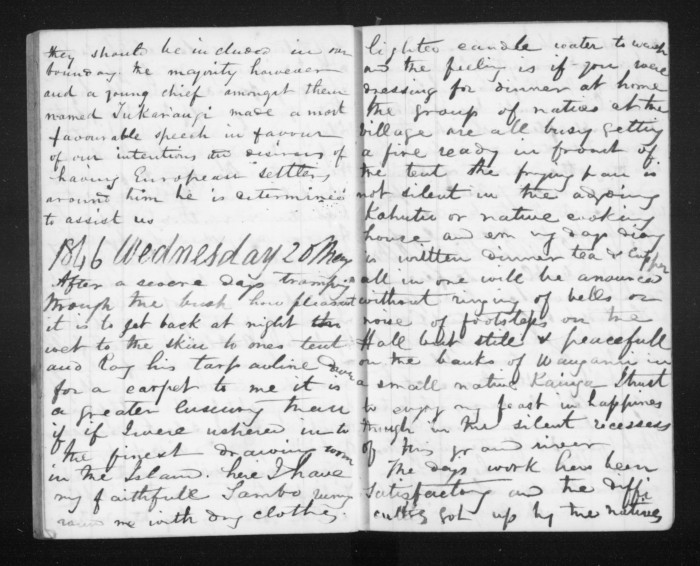 they should be included in our
boundary the majority however
and a young chief amongst them
named Tukarangi made a most
favourable speech in favour
of our intentions desirous of
having European settlers
around him he is determined
to assist us
1846 Wednesday 20 May
After a severe days tramping
through the bush how pleasant
it is to get back at night
wet to the skin to ones tent
and Roy his tarpauline down
for a carpet to me it is
a greater luxury than
if if I were ushered into
the finest drawing room
in the Island. here I have
my faithfull Sambo
me with dry clothes.
lighted candle water to wash
and the feeling is if you were
dressing for dinner at home
the group of natives at the
village are all busy getting
a fire ready in front of
the tent the frying pan is
not silent in the adjoing
Kahutu or native cooking
house and my days diary
is written dinner tea & supper
all in one will be anounced
without ringing of bells or
noise of footsteps on the
Hall but still & peacefull
on the banks of Wanganui in
a small native Kainga I trust
to enjoy my feast in happiness
though in the silent recesses
of this grand river
The days work has been
satisfactory and the diffi
culties got up by the natives